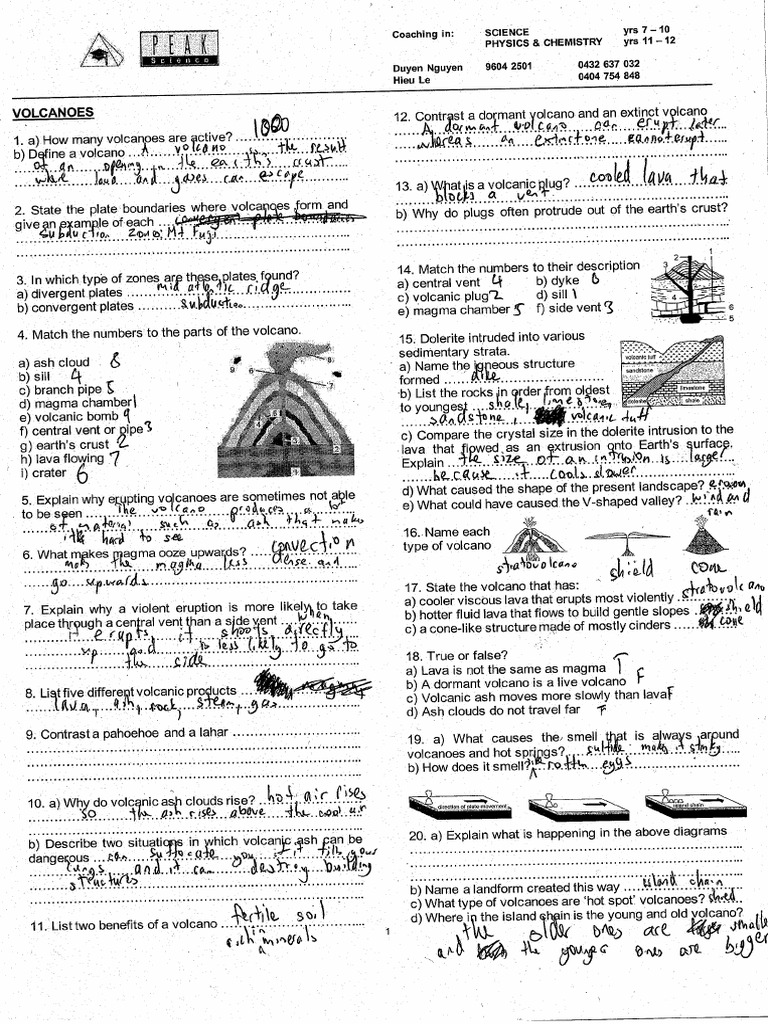 PEAK
Science
Coaching in: SCIENCE yrs 7 – 10
PHYSICS & CHEMISTRY yrs 11 – 12
Duyen Nguyen 9604 2501 0432 637 032
Hieu Le 0404 754 848
VOLCANOES
1. a) How many volcanoes are active? 1000
b) Define a volcano A volcano is the result
of an opening in the earth's crust
where land and gases can escape
2. State the plate boundaries where volcanoes form and
give an example of each convergen plate boundaries
subduction zone: Mt Fugi
3. In which type of zones are these plates found?
a) divergent plates mid atlantic ridge
b) convergent plates subduction
4. Match the numbers to the parts of the volcano.
a) ash cloud 8
b) sill 4
c) branch pipe 5
d) magma chamber 1
e) volcanic bomb 9
f) central vent or pipe 3
g) earth's crust 2
h) lava flowing 7
i) crater 6
5. Explain why erupting volcanoes are sometimes not able
to be seen The volcano produces a lot
of material such as ash that makes
it hard to see
6. What makes magma ooze upwards? convection
makes the magma less dense and
go upwards
7. Explain why a violent eruption is more likely to take
place through a central vent than a side vent when
it erupts, it shoots directly
up and is less likely to go to
the side
8. List five different volcanic products
lava, ash, rock, steam, gas
9. Contrast a pahoehoe and a lahar
10. a) Why do volcanic ash clouds rise? hot air rises
so the ash rises above the cool air
b) Describe two situations in which volcanic ash can be
dangerous can suffocate you if it fills your
lungs and it can destroy building
structures
11. List two benefits of a volcano fertile soil
rich in minerals
12. Contrast a dormant volcano and an extinct volcano
A dormant volcano can erupt later
whereas an extinct one cannot erupt
13. a) What is a volcanic plug? cooled lava that
blocks a vent
b) Why do plugs often protrude out of the earth's crust?
14. Match the numbers to their description
a) central vent 4 b) dyke 6
c) volcanic plug 2 d) sill 1
e) magma chamber 5 f) side vent 3
15. Dolerite intruded into various
sedimentary strata.
a) Name the igneous structure
formed dike
b) List the rocks in order from oldest
to youngest shale, limestone,
sandstone, volcanic tuff
volcanic tuff
sandstone
limestone
dolerite shale
c) Compare the crystal size in the dolerite intrusion to the
lava that flowed as an extrusion onto Earth's surface.
Explain the size of an intrusion is larger
because it cools slower
d) What caused the shape of the present landscape? erosion
e) What could have caused the V-shaped valley? wind and
rain
16. Name each
type of volcano
stratovolcano shield cone
17. State the volcano that has:
a) cooler viscous lava that erupts most violently stratovolcano
b) hotter fluid lava that flows to build gentle slopes shield
c) a cone-like structure made of mostly cinders cone
18. True or false?
a) Lava is not the same as magma T
b) A dormant volcano is a live volcano F
c) Volcanic ash moves more slowly than lava F
d) Ash clouds do not travel far F
19. a) What causes the smell that is always around
volcanoes and hot springs? sulfide makes it stinky
b) How does it smell? like rotten eggs
direction of plate movement island chain
20. a) Explain what is happening in the above diagrams
b) Name a landform created this way island chain
c) What type of volcanoes are 'hot spot' volcanoes? shield
d) Where in the island chain is the young and old volcano?
the older ones are smaller
and the younger ones are bigger
1